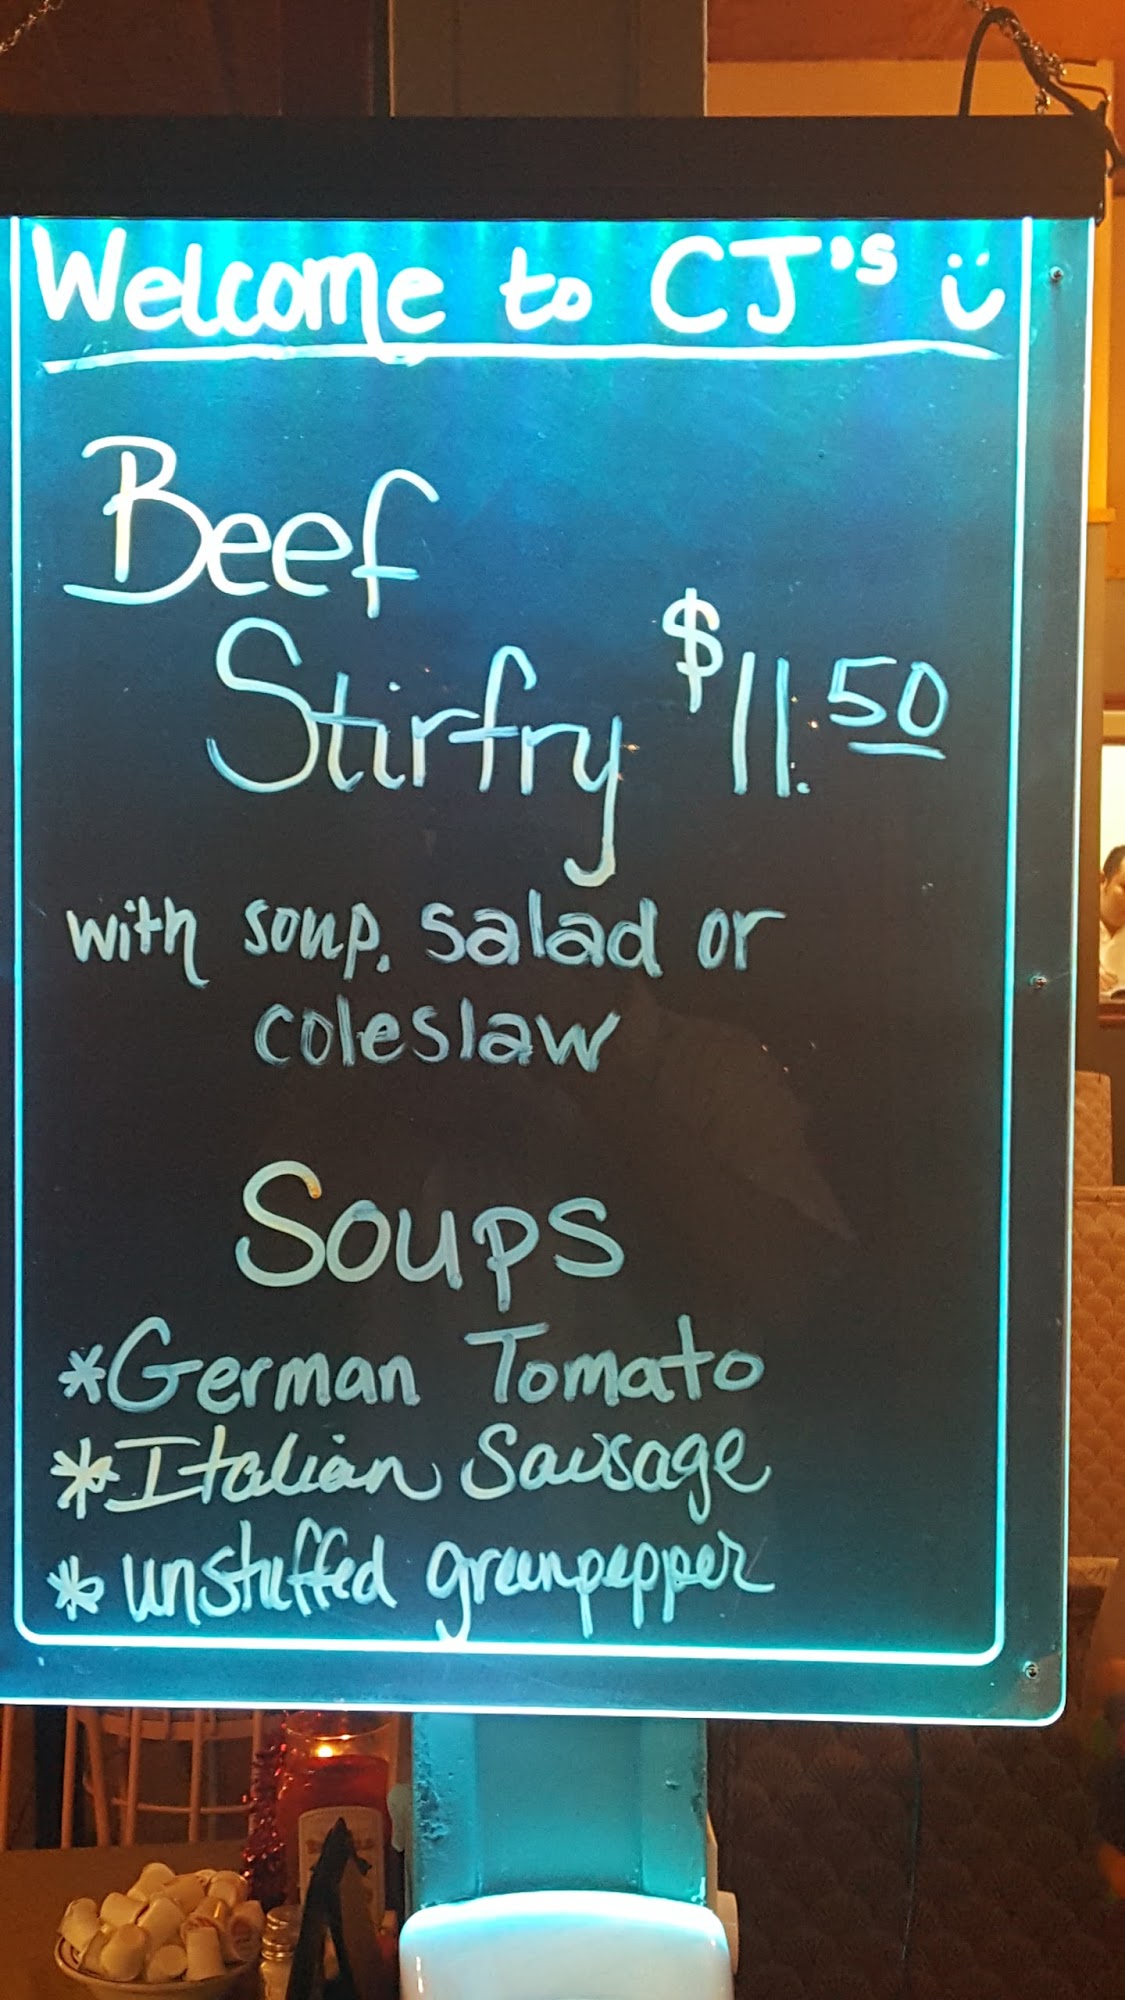 Welcome to CJ's
Beef
Stirfry $11.50
with soup, salad or
coleslaw
Soups
*German Tomato
*Italian Sausage
* unstuffed greenpepper